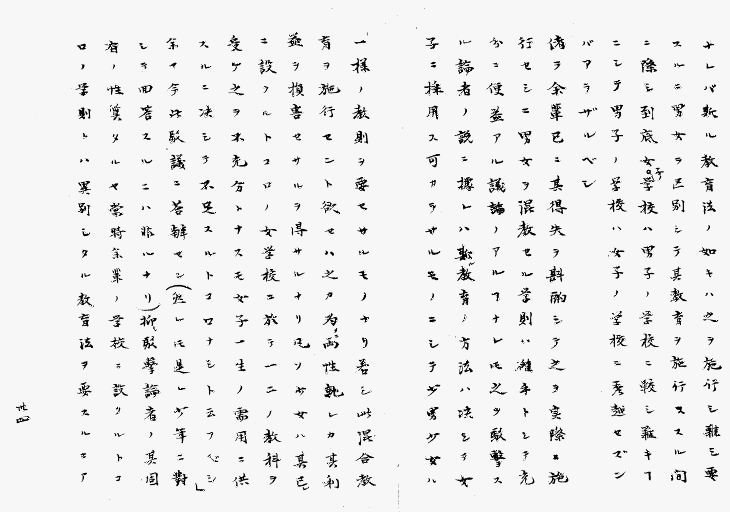 ナレバ斯ル教育法ノ如キハ之ヲ施行シ難シ要
スルニ男女ヲ区別シテ其教育ヲ施行スルノ間
ニ際シ到底女子学校ハ男子ノ学校ニ較シ難キヿ
ニシテ男子ノ学校ハ女子ノ学校ニ秀越セズン
バアラザルベシ
偖テ余輩已ニ其得失ヲ斟酌シテ之ヲ実際ニ施
行セシニ男女ヲ混教セル学則ハ確乎トシテ充
分ニ便益アル議論ノアルヿナレ𪜈之ヲ駁撃ス
ル論者ノ説ニ據レハ斯教育ノ方法ハ决シテ女
子ニ採用ス可カラサルモノニシテ少男少女ハ
一様ノ教則ヲ要セサルモノナリ若シ此混合教
育ヲ施行セント欲セハ之カ為両性孰レカ其利
益ヲ損害セサルヲ得サルナリ
ニ設ノルトコロノ女学校ニ於テ一二ノ教科ヲ
受ケ之ヲ不充分トナスモ女子一生ノ需用ニ供
スルニ决シテ不足スルトコロナシト云フベシ」
余今此駁議ニ答辯セン(然レ𪜈是レ少年ニ對
シテ回答スルニハ非ルナリ)抑駁撃論者ノ其固
有ノ性質タルヤ常時余輩ノ学校ニ設クルトコ
ロノ学則トハ異別シタル教育法ヲ要スルニア
卅四